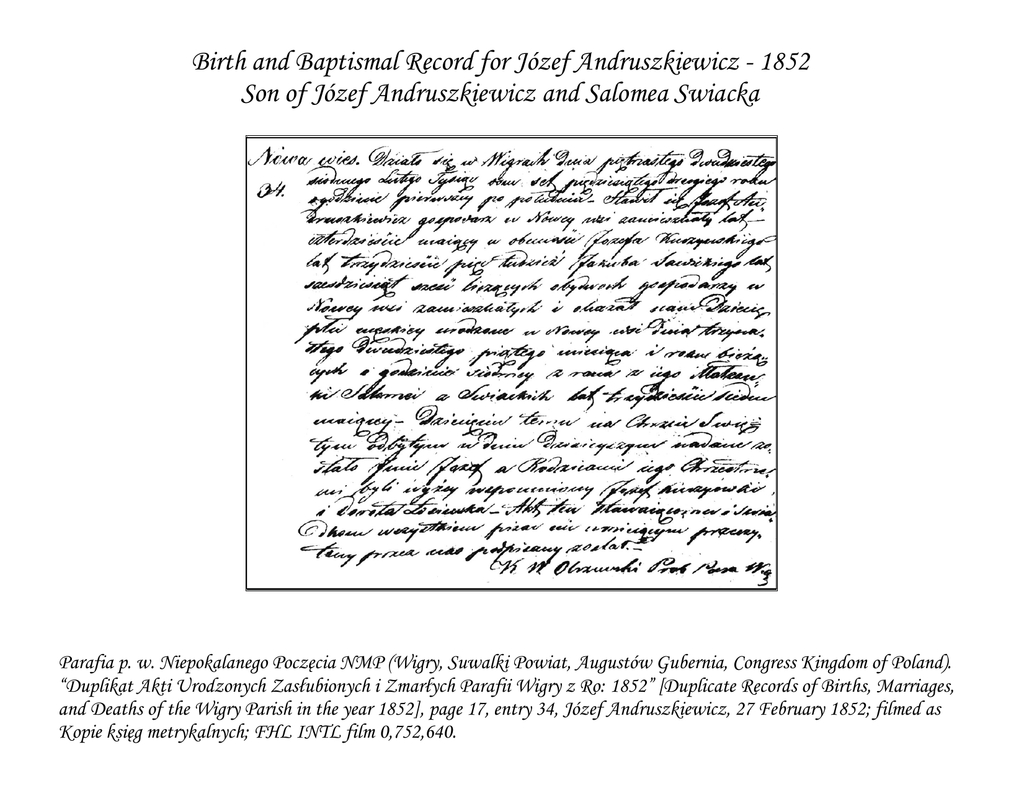 Birth and Baptismal Record for Józef Andruszkiewicz - 1852
Son of Józef Andruszkiewicz and Salomea Swiacka
Nowa wies. Działo się w Wigrach Dnia piętnastego Dwudziestego
34. siodmego Lutego Tysiąc osm set pięcdziesiątego drugiego roku
o godzinie pierwszey po południu – Stawił się Jozef An-
druszkiewicz gospodarz w Nowey wsi zamieszkały lat
czterdzieście maiący w obecności Jozefa Kuczynskiego
lat trzydzieście pięc tudzież Jakuba Sawickiego lat
szescdziesiąt szesć liczących obydwoch gospodarzy w
Nowey wsi zamieszkałych i okazał nam Dziecię
płci męskiey urodzone w Nowey wsi Dnia
stego Dwudziestego piątego miesiąca i roku bieżą-
cych o godzinie siodmey z rana z iego Małżon-
ki Salomei z Swiackich lat trzydzieście siedm
maiącey – Dziecięciu temu na Chrzcie Swię-
tym odbytym w Dniu Dzisieyszym nadane zo-
stało Jmie Jozef a Rodzicami iego Chrzestne-
mi byli wyżey wspomniony Jozef
i Dorota – Akt ten Stawaiącemu i Swia
dkom wszystkim pisac nie umieiącym przeczy-
tany przez nas podpisany został. –
K. W. Olszewski Prob Para Wig
Parafia p. w. Niepokalanego Poczęcia NMP (Wigry, Suwalki Powiat, Augustów Gubernia, Congress Kingdom of Poland).
“Duplikat Akti Urodzonych Zasłubionych i Zmarłych Parafii Wigry z Ro: 1852” [Duplicate Records of Births, Marriages,
and Deaths of the Wigry Parish in the year 1852], page 17, entry 34, Józef Andruszkiewicz, 27 February 1852; filmed as
Kopie ksiąg metrykalnych; FHL INTL film 0,752,640.